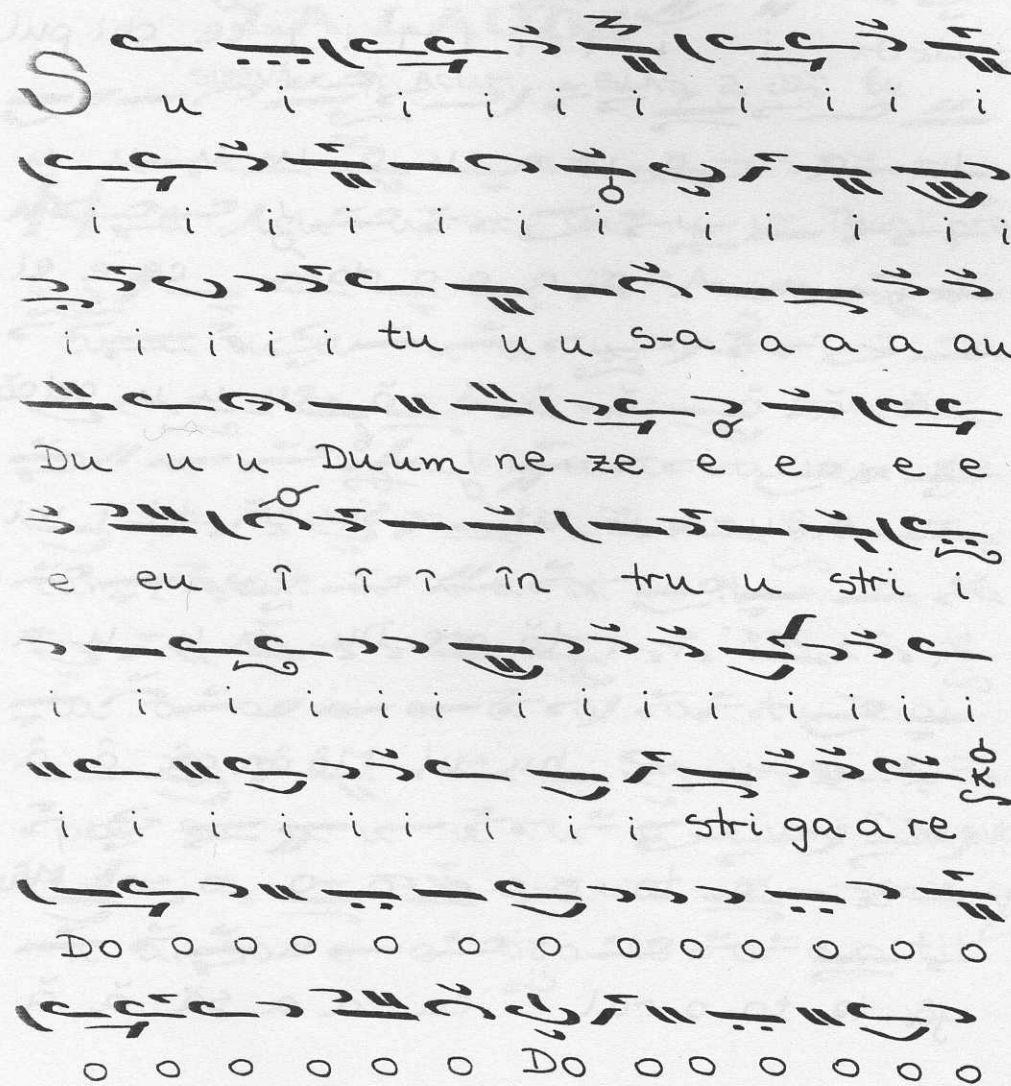 S u i i i i i i i i i
i i i i i i i i i i i i
i i i i i tu u u s-a a a a au
Du u u Duum ne ze e e e e
e eu î î î în tru u stri i
i i i i i i i i i i i i i
i i i i i i i i i stri ga a re
Do o o o o o o o o o o o
o o o o o o Do o o o o o